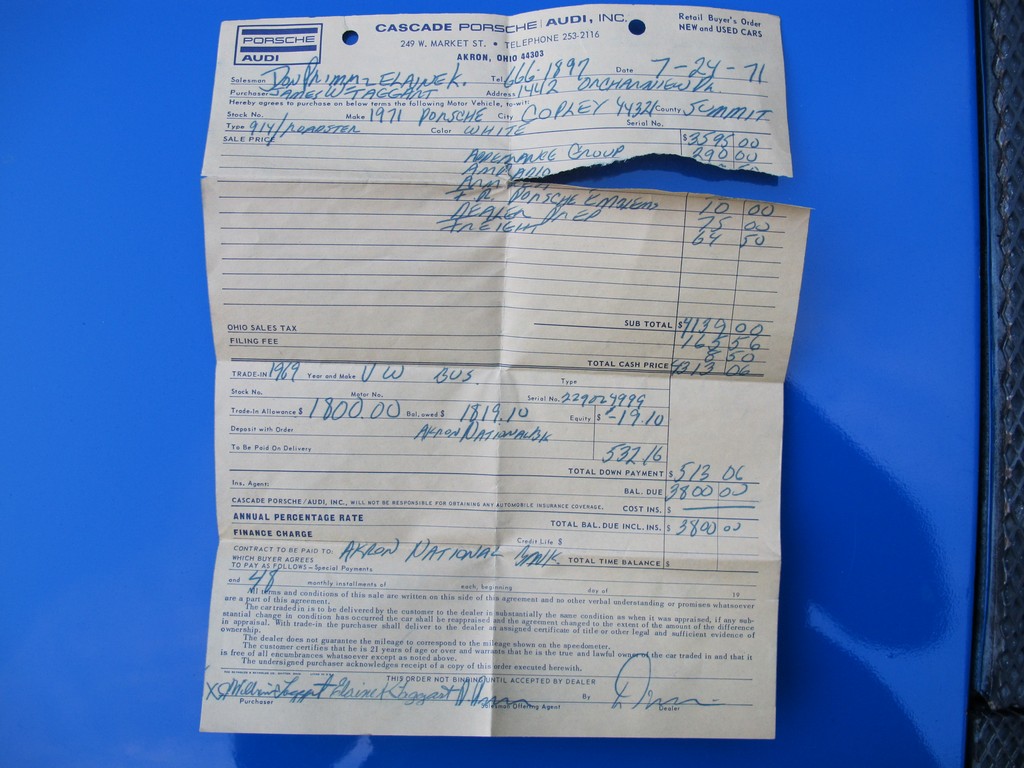 PORSCHE
AUDI
CASCADE PORSCHE AUDI, INC.
249 W. MARKET ST. • TELEPHONE 253-2116
AKRON, OHIO 44303
Retail Buyer's Order
NEW and USED CARS
Salesman Don Prima - ELAINE K. Tel. 666-1897 Date 7-24-71
Purchaser JAMES W TAGGART Address 1442 ORCHARDVIEW DR.
Hereby agrees to purchase on below terms the following Motor Vehicle, to-wit:
Stock No. Make 1971 PORSCHE City COPLEY 44321 County SUMMIT
Type 914/ROADSTER Color WHITE Serial No.
SALE PRICE $ 3595 00
APPEARANCE GROUP 290 00
F.R. PORSCHE EMBLEMS 10 00
DEALER PREP 75 00
FREIGHT 64 50
SUB TOTAL $ 4139 00
OHIO SALES TAX 165 56
FILING FEE 8 50
TOTAL CASH PRICE 4313 06
TRADE-IN 1969 Year and Make VW BUS Type
Stock No. Motor No. Serial No. 229024999
Trade-In Allowance $ 1800.00 Bal. owed $ 1819.10 Equity $ -19.10
Deposit with Order AKRON NATIONAL BK
To Be Paid On Delivery 532 16
TOTAL DOWN PAYMENT $ 513 06
Ins. Agent: BAL. DUE 3800 00
CASCADE PORSCHE/AUDI, INC., WILL NOT BE RESPONSIBLE FOR OBTAINING ANY AUTOMOBILE INSURANCE COVERAGE. COST INS. $
ANNUAL PERCENTAGE RATE TOTAL BAL. DUE INCL. INS. $ 3800 00
FINANCE CHARGE Credit Life $
CONTRACT TO BE PAID TO: AKRON NATIONAL BANK. TOTAL TIME BALANCE $
WHICH BUYER AGREES
TO PAY AS FOLLOWS – Special Payments
and 48 monthly installments of each, beginning day of 19
All terms and conditions of this sale are written on this side of this agreement and no other verbal understanding or promises whatsoever
are a part of this agreement.
The car traded in is to be delivered by the customer to the dealer in substantially the same condition as when it was appraised, if any sub-
stantial change in condition has occurred the car shall be reappraised and the agreement changed to the extent of the amount of the difference
in appraisal. With trade-in the purchaser shall deliver to the dealer an assigned certificate of title or other legal and sufficient evidence of
ownership.
The dealer does not guarantee the mileage to correspond to the mileage shown on the speedometer.
The customer certifies that he is 21 years of age or over and warrants that he is the true and lawful owner of the car traded in and that it
is free of all encumbrances whatsoever except as noted above.
The undersigned purchaser acknowledges receipt of a copy of this order executed herewith.
THIS ORDER NOT BINDING UNTIL ACCEPTED BY DEALER
X J William Taggart Elaine K Taggart By
Purchaser Salesman Offering Agent Dealer